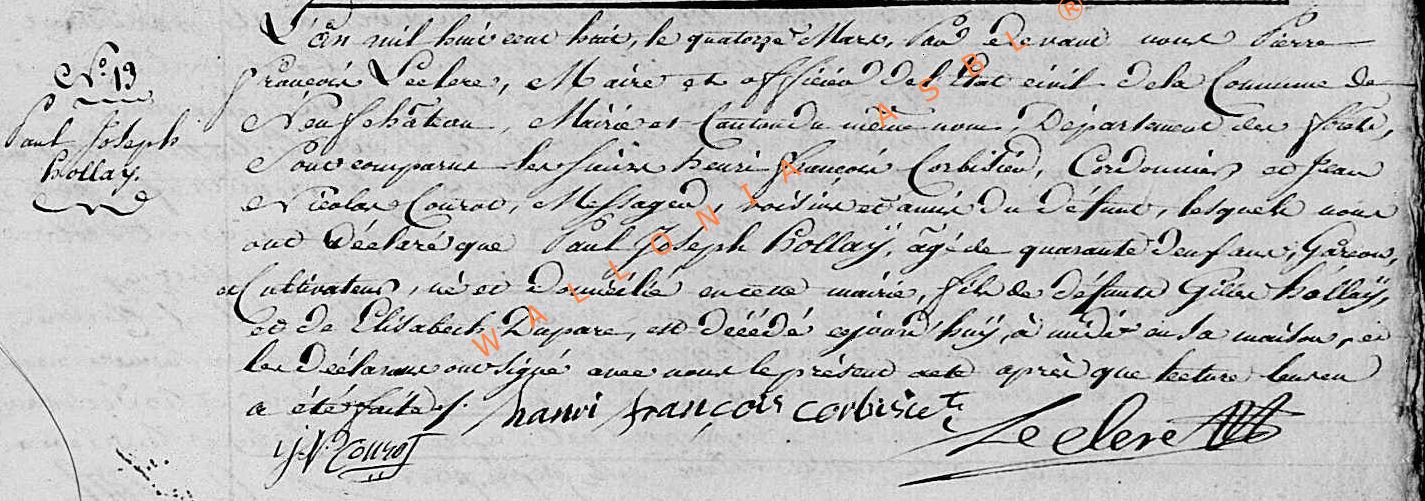 N.o 13
Paul Joseph
hollay.
L'an mil huit cent huit, le quatorze Mars, Par devant nous Pierre
François Leclere, Maire et officier de l'Etat civil de la Commune de
Neufchâteau, Mairie et Canton du même nom, Département des forêts,
Sont comparus les sieurs henri françois Corbisier, Cordonnier et Jean
Nicolas Courot, Messager, voisins et amis du défunt, lesquels nous
ont déclaré que Paul Joseph hollaÿ, âgé de quarante deux ans, Garçon,
et Cultivateur, né et domicilié en cette mairie, fils de défunts hollaÿ,
et de Elisabeth Dupare, est décédé cejourd'huÿ, à midi en sa maison, et
les déclarans ont signé avec nous le présent acte après que lecture leur en
a été faite
hanri françois corbisie
Leclere
J N Courot
WALLONIA ASBL ®